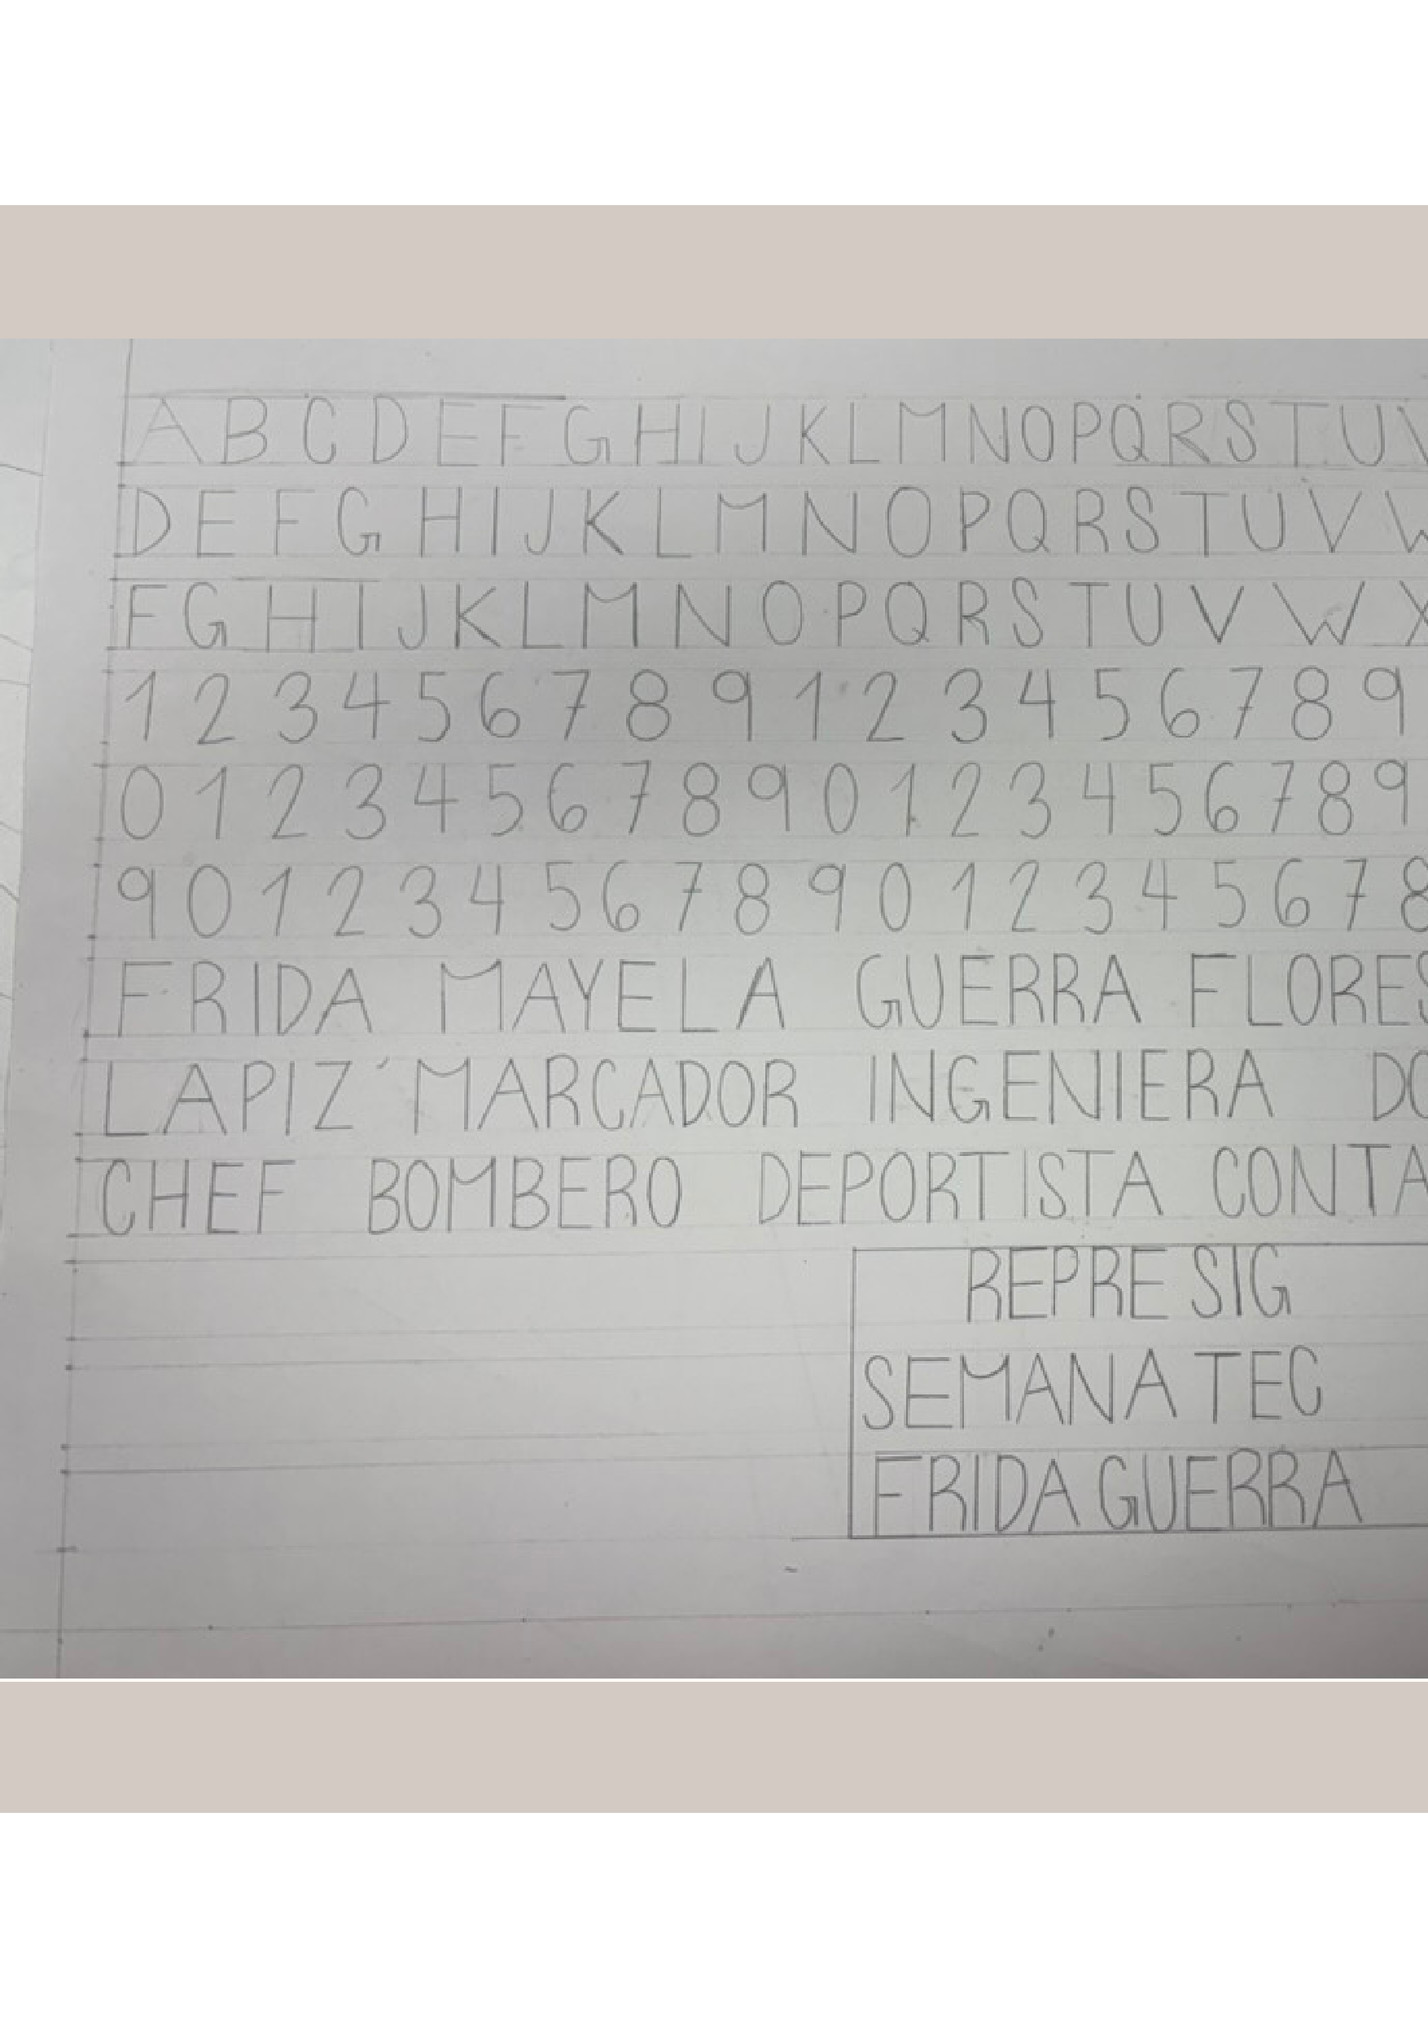 A B C D E F G H I J K L M N O P Q R S T U V
D E F G H I J K L M N O P Q R S T U V W
F G H I J K L M N O P Q R S T U V W X
1 2 3 4 5 6 7 8 9 1 2 3 4 5 6 7 8 9
0 1 2 3 4 5 6 7 8 9 0 1 2 3 4 5 6 7 8 9
9 0 1 2 3 4 5 6 7 8 9 0 1 2 3 4 5 6 7 8
FRIDA MAYELA GUERRA FLORES
LAPIZ MARCADOR INGENIERA DO
CHEF BOMBERO DEPORTISTA CONTA
REPRE SIG
SEMANA TEC
FRIDA GUERRA